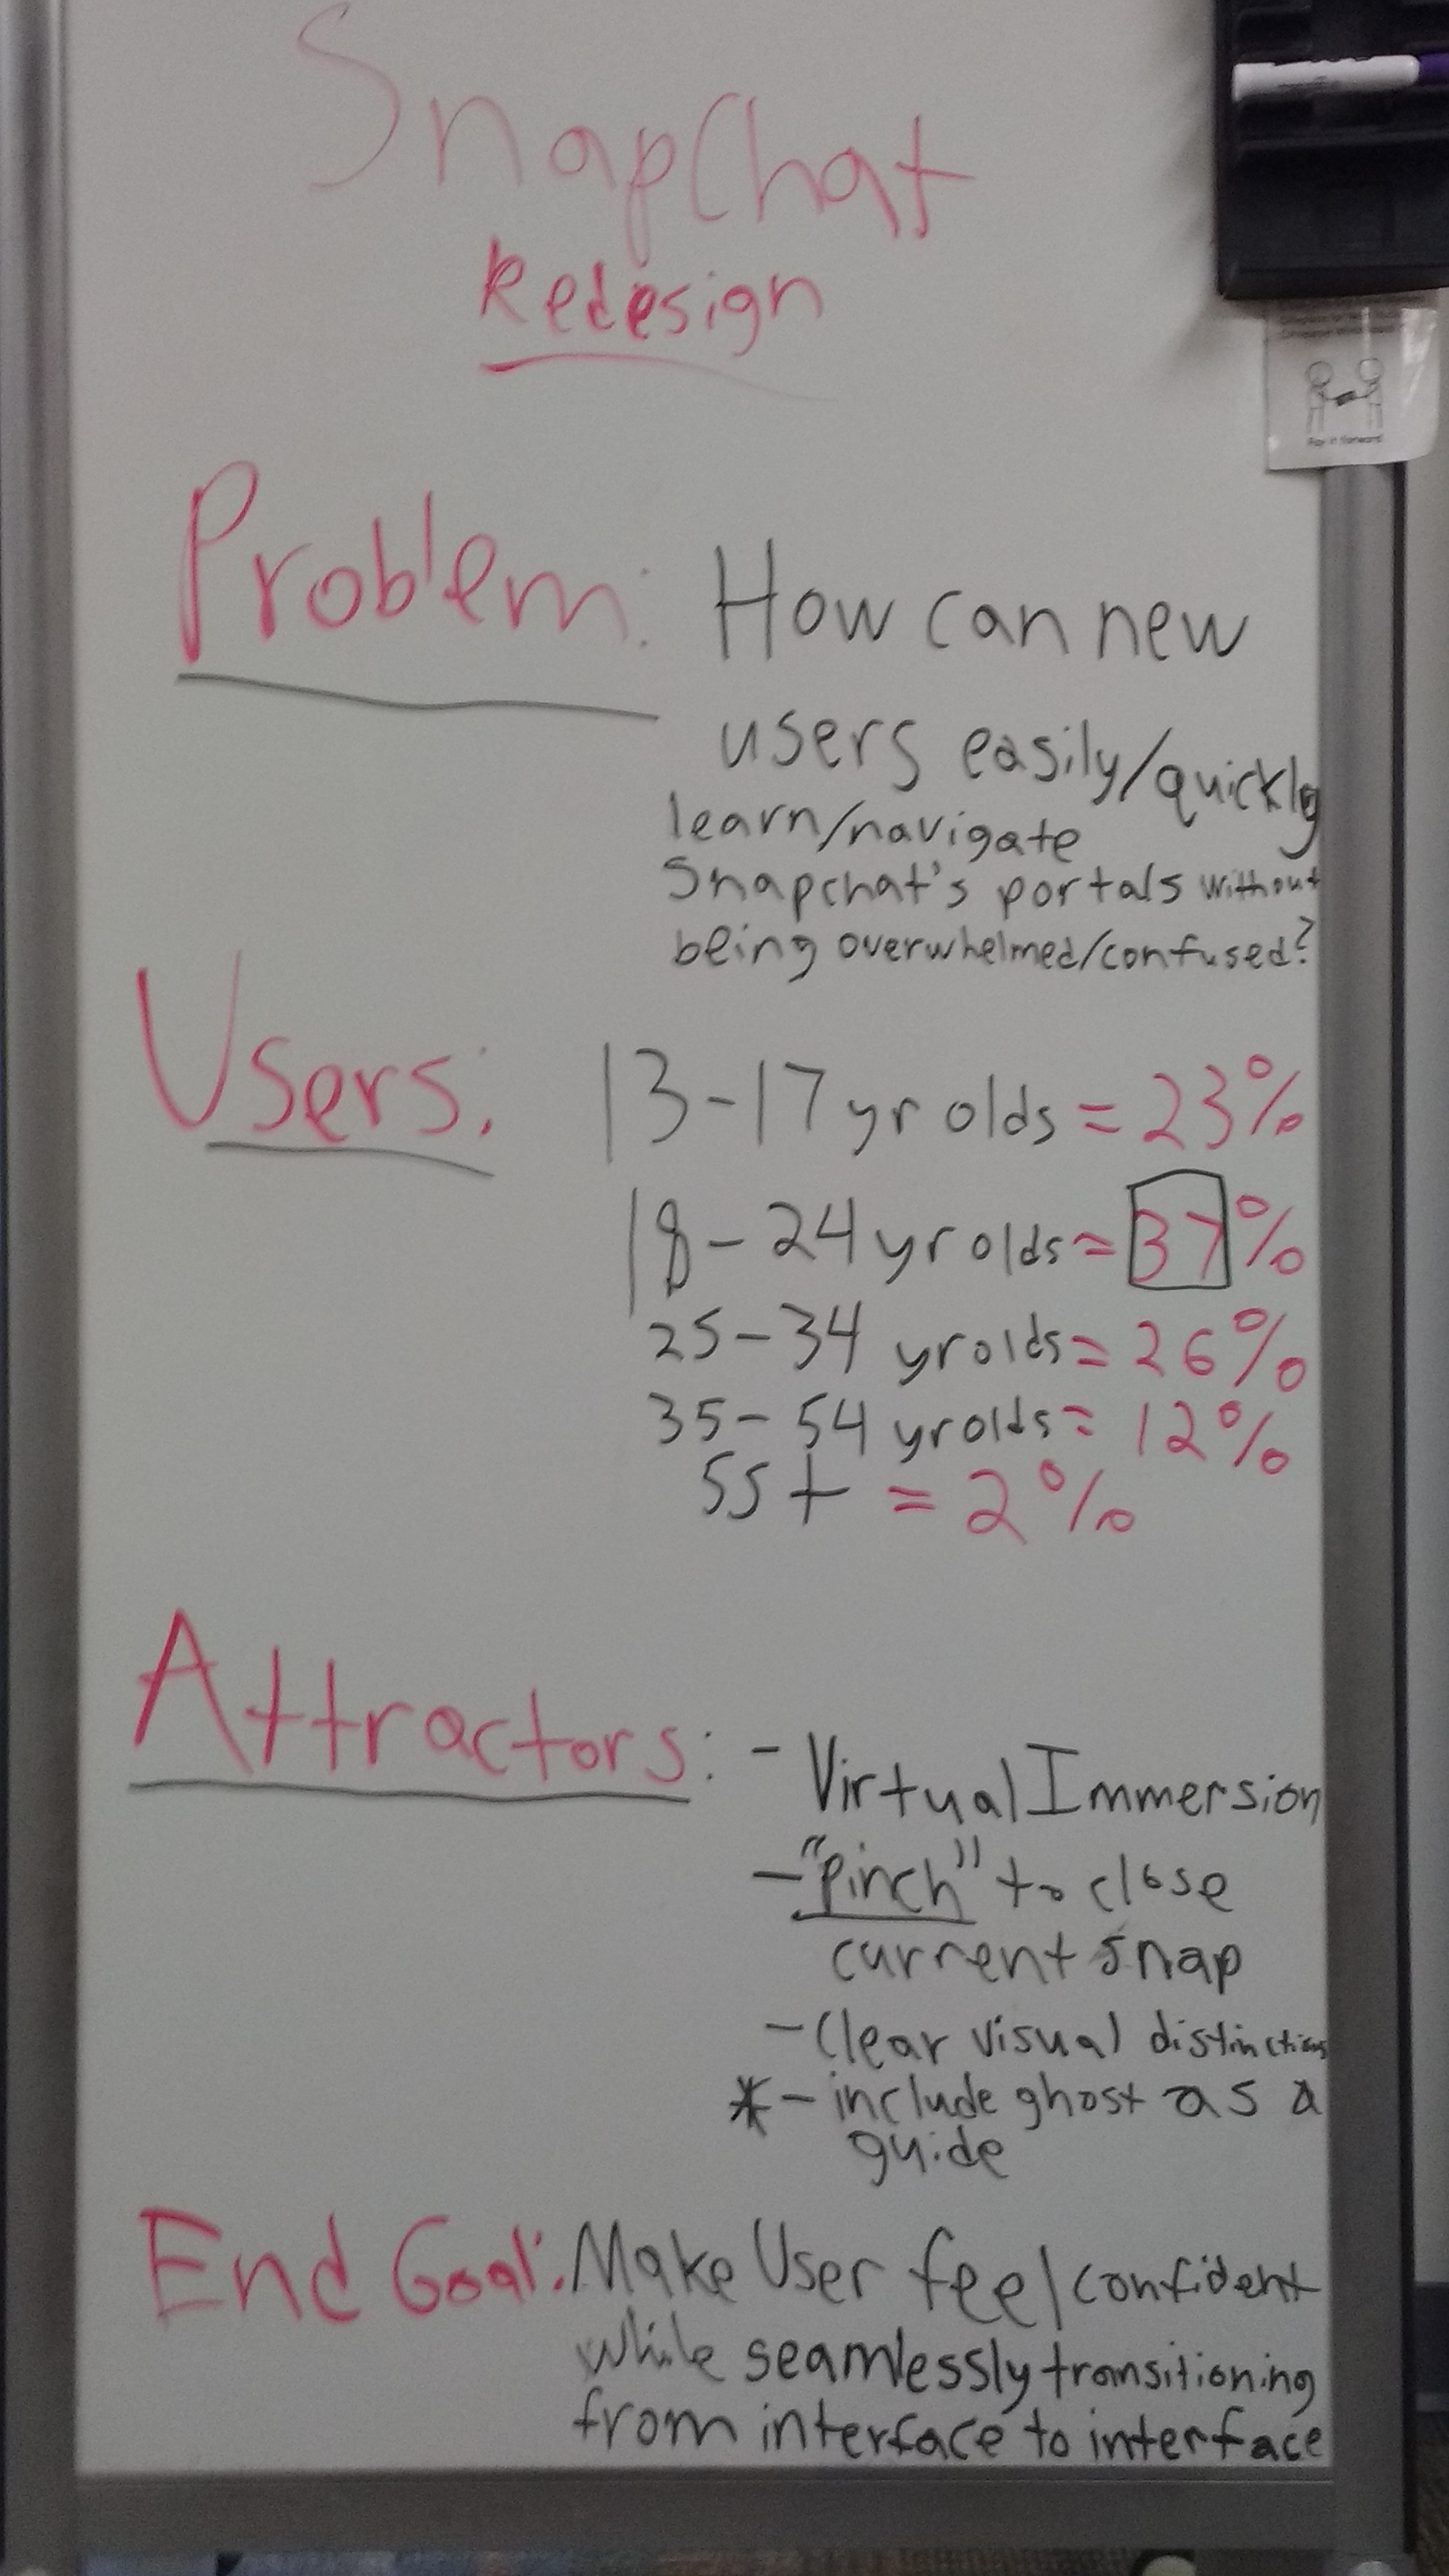 SnapChat
Redesign
Problem: How can new
users easily/quickly
learn/navigate
Snapchat's portals without
being overwhelmed/confused?
Users: 13-17 yr olds = 23%
18-24 yr olds = 37%
25-34 yr olds = 26%
35-54 yr olds = 12%
55+ = 2%
Attractors: - Virtual Immersion
- "Pinch" to close
current snap
- Clear visual distinctions
* - include ghost as a
guide
End Goal: Make User feel confident
while seamlessly transitioning
from interface to interface
Pay it forward